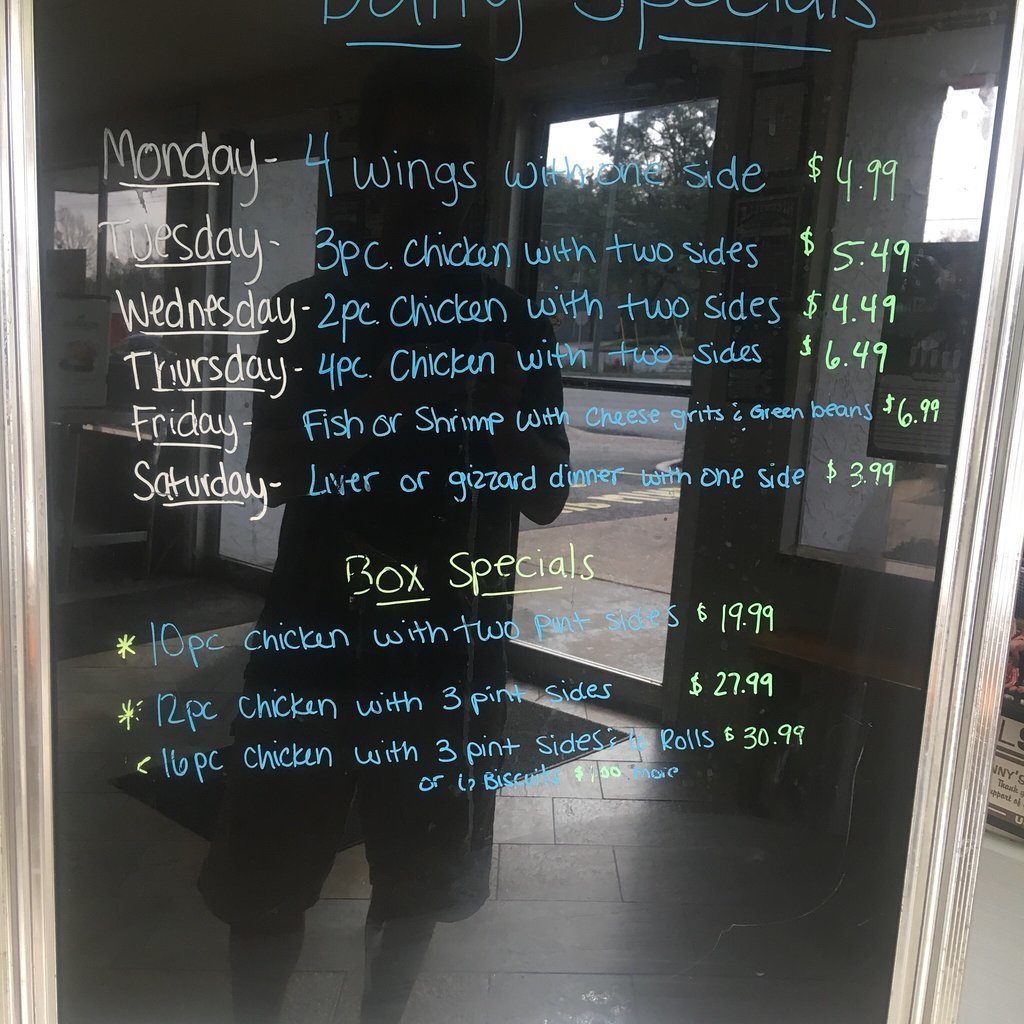 Daily Specials
Monday- 4 wings with one side $4.99
Tuesday- 3pc. Chicken with two sides $5.49
Wednesday- 2pc. Chicken with two sides $4.49
Thursday- 4pc. Chicken with two sides $6.49
Friday- Fish or Shrimp with cheese grits & Green beans $6.99
Saturday- Liver or gizzard dinner with one side $3.99
Box Specials
* 10pc chicken with two pint sides $19.99
* 12pc Chicken with 3 pint sides $27.99
16pc Chicken with 3 pint sides & 6 Rolls $30.99
or 6 Biscuits $1.00 more
NNY'S
Thank